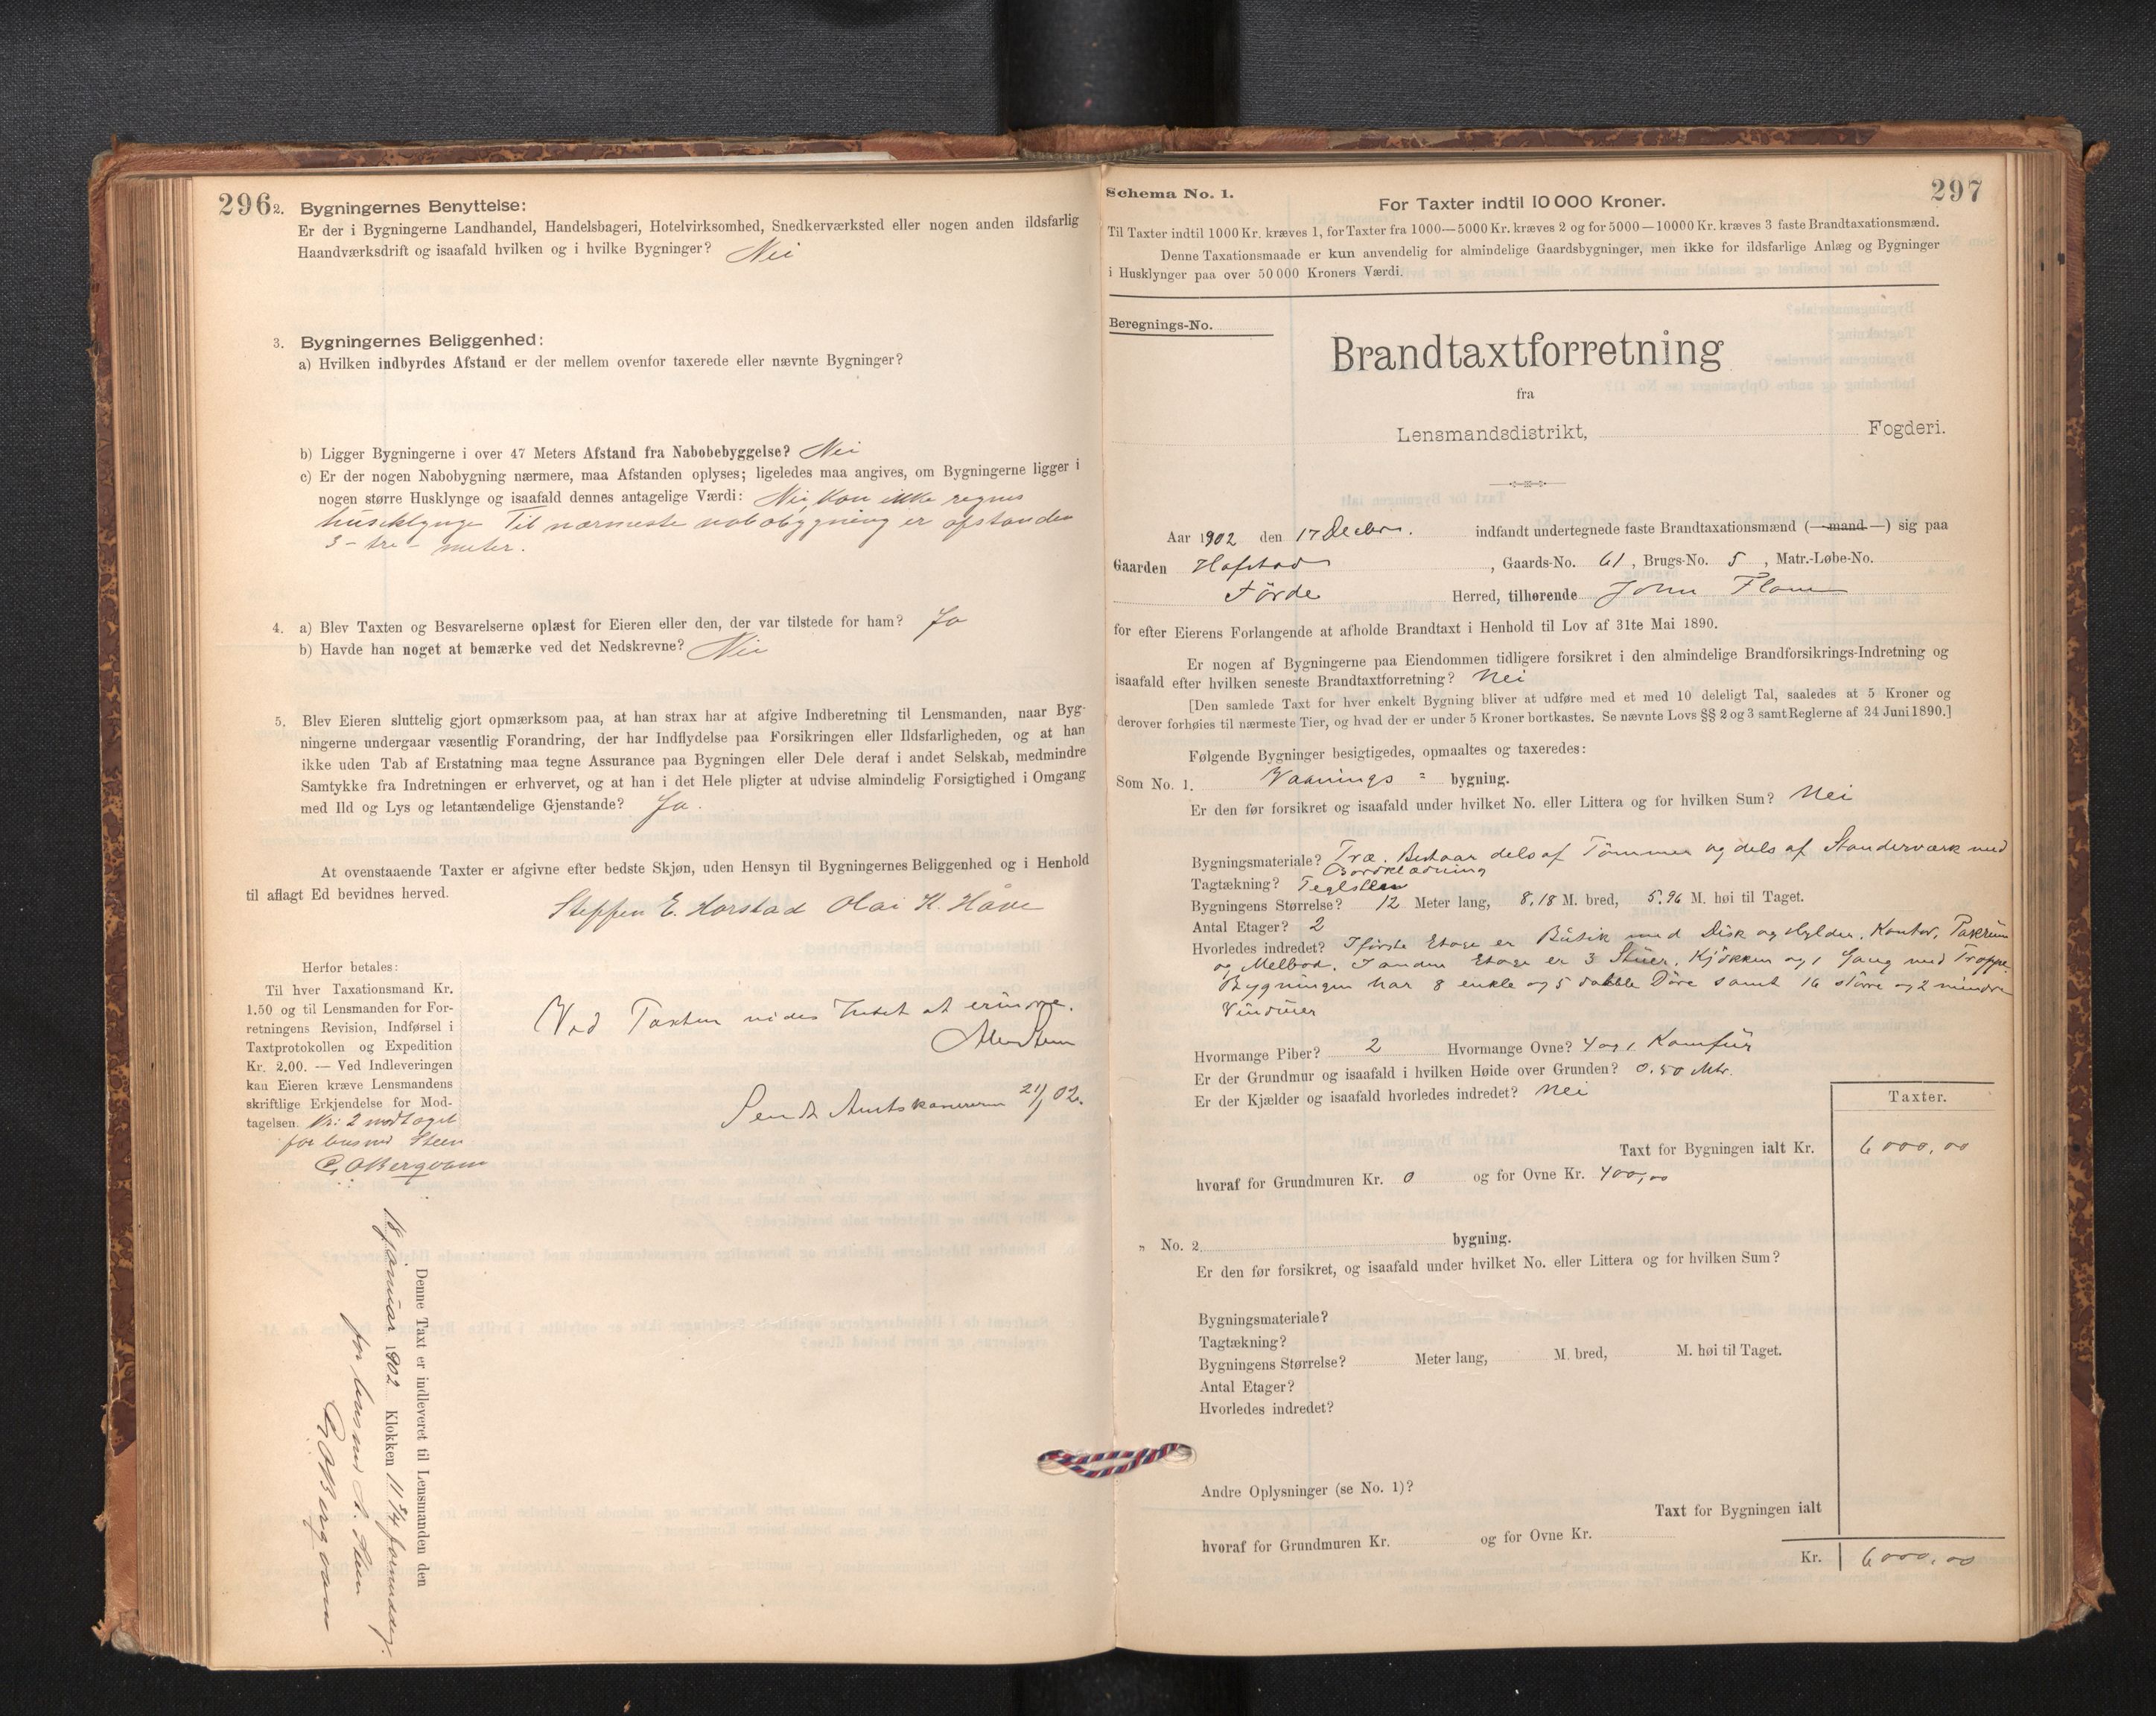 296
2. Bygningernes Benyttelse:
Er der i Bygningerne Landhandel, Handelsbageri, Hotelvirksomhed, Snedkerværksted eller nogen anden ildsfarlig
Haandværksdrift og isaafald hvilken og i hvilke Bygninger? Nei
3. Bygningernes Beliggenhed:
a) Hvilken indbyrdes Afstand er der mellem ovenfor taxerede eller nævnte Bygninger?
b) Ligger Bygningerne i over 47 Meters Afstand fra Nabobebyggelse? Nei
c) Er der nogen Nabobygning nærmere, maa Afstanden oplyses; ligeledes maa angives, om Bygningerne ligger i
nogen større Husklynge og isaafald dennes antagelige Værdi: Nei, kan ikke regnes
husklynge Til nærmeste nabobygning er afstanden
3 - tre - meter.
4. a) Blev Taxten og Besvarelserne oplæst for Eieren eller den, der var tilstede for ham? Ja
b) Havde han noget at bemærke ved det Nedskrevne? Nei
5. Blev Eieren sluttelig gjort opmærksom paa, at han strax har at afgive Indberetning til Lensmanden, naar Byg-
ningerne undergaar væsentlig Forandring, der har Indflydelse paa Forsikringen eller Ildsfarligheden, og at han
ikke uden Tab af Erstatning maa tegne Assurance paa Bygningen eller Dele deraf i andet Selskab, medmindre
Samtykke fra Indretningen er erhvervet, og at han i det Hele pligter at udvise almindelig Forsigtighed i Omgang
med Ild og Lys og letantændelige Gjenstande? Ja.
At ovenstaaende Taxter er afgivne efter bedste Skjøn, uden Hensyn til Bygningernes Beliggenhed og i Henhold
til aflagt Ed bevidnes herved.
Steffen E. Horstad Olai H. Håve
Herfor betales:
Til hver Taxationsmand Kr.
1.50 og til Lensmanden for For-
retningens Revision, Indførsel i
Taxtprotokollen og Expedition
Kr. 2.00. — Ved Indleveringen
kan Eieren kræve Lensmandens
skriftlige Erkjendelse for Mod-
tagelsen. Kr: 2 modtaget
for lensmd Steen
G. O. Bergvam
Ved Taxten vides Intet at erindre.
Sendt Amtskasereren 21/1 02.
Denne Taxt er indleveret til Lensmanden den
18 januar 1902 Klokken 11 3/4 formiddag.
for lensmd A. Steen
G. O. Bergvam
297
Schema No. 1.
For Taxter indtil 10 000 Kroner.
Til Taxter indtil 1000 Kr. kræves 1, for Taxter fra 1000—5000 Kr. kræves 2 og for 5000—10000 Kr. kræves 3 faste Brandtaxationsmænd.
Denne Taxationsmaade er kun anvendelig for almindelige Gaardsbygninger, men ikke for ildsfarlige Anlæg og Bygninger
i Husklynger paa over 50 000 Kroners Værdi.
Beregnings-No.
Brandtaxtforretning
fra
Lensmandsdistrikt, Fogderi.
Aar 1902 den 17 Decbr. indfandt undertegnede faste Brandtaxationsmænd (—mand—) sig paa
Gaarden Hafstad, Gaards-No. 61, Brugs-No. 5, Matr.-Løbe-No.
Førde Herred, tilhørende John Flam
for efter Eierens Forlangende at afholde Brandtaxt i Henhold til Lov af 31te Mai 1890.
Er nogen af Bygningerne paa Eiendommen tidligere forsikret i den almindelige Brandforsikrings-Indretning og
isaafald efter hvilken seneste Brandtaxtforretning? Nei
[Den samlede Taxt for hver enkelt Bygning bliver at udføre med et med 10 deleligt Tal, saaledes at 5 Kroner og
derover forhøies til nærmeste Tier, og hvad der er under 5 Kroner bortkastes. Se nævnte Lovs §§ 2 og 3 samt Reglerne af 24 Juni 1890.]
Følgende Bygninger besigtigedes, opmaaltes og taxeredes:
Som No. 1. Vaanings = bygning.
Er den før forsikret og isaafald under hvilket No. eller Littera og for hvilken Sum? Nei
Bygningsmateriale? Træ. Bestaar dels af Tømmer og dels af Standerværk med
Bordklædning
Tagtækning? Teglsten
Bygningens Størrelse? 12 Meter lang, 8,18 M. bred, 5,96 M. høi til Taget.
Antal Etager? 2
Hvorledes indredet? I første Etage er Butik med Disk og Hylder, Kontor, Pakrum
og Melbod. I anden Etage er 3 Stuer, Kjøkken og 1 Gang med Trappe.
Bygningen har 8 enkle og 5 dobble Døre samt 16 større og 2 mindre
Vinduer
Hvormange Piber? 2 Hvormange Ovne? 4 og 1 Komfür
Er der Grundmur og isaafald i hvilken Høide over Grunden? 0.50 Mtr.
Er der Kjælder og isaafald hvorledes indredet? Nei
Taxter.
Taxt for Bygningen ialt Kr. 6000,00
hvoraf for Grundmuren Kr. 0 og for Ovne Kr. 400,00
„ No. 2. bygning.
Er den før forsikret, og isaafald under hvilket No. eller Littera og for hvilken Sum?
Bygningsmateriale?
Tagtækning?
Bygningens Størrelse? Meter lang, M. bred, M. høi til Taget.
Antal Etager?
Hvorledes indredet?
Andre Oplysninger (se No. 1)?
Taxt for Bygningen ialt
hvoraf for Grundmuren Kr. og for Ovne Kr.
Kr. 6000,00